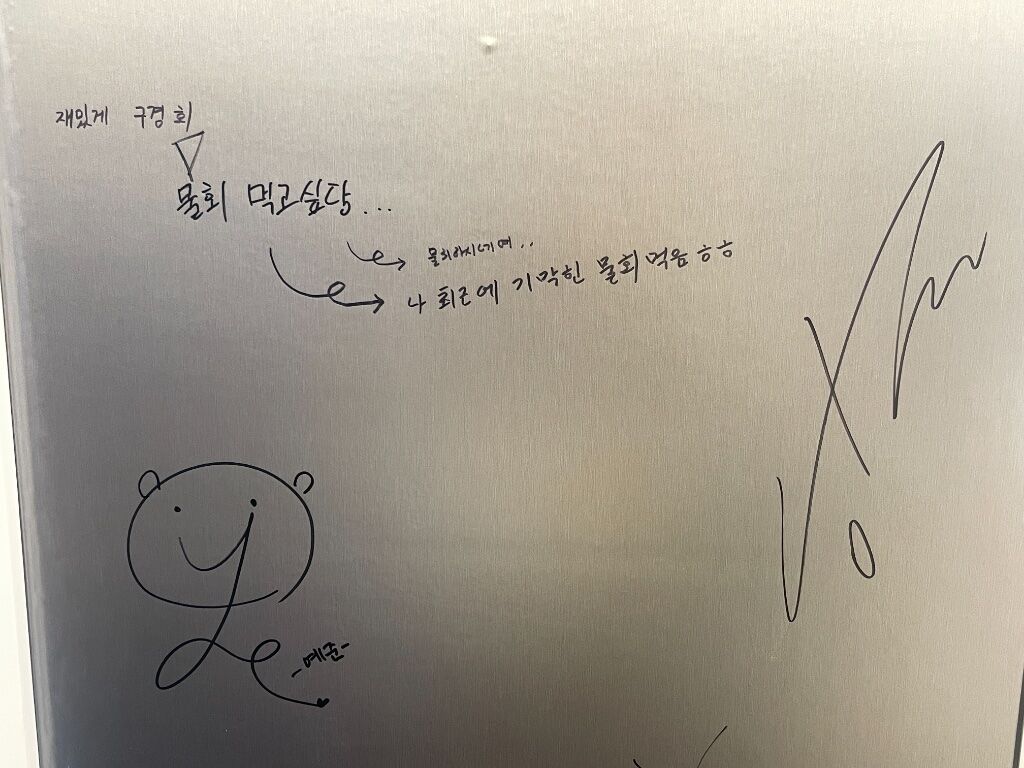 재밌게 구경 회
물회 먹고싶당...
나 최근에 기막힌 물회 먹음 ㅎㅎ
-예준-